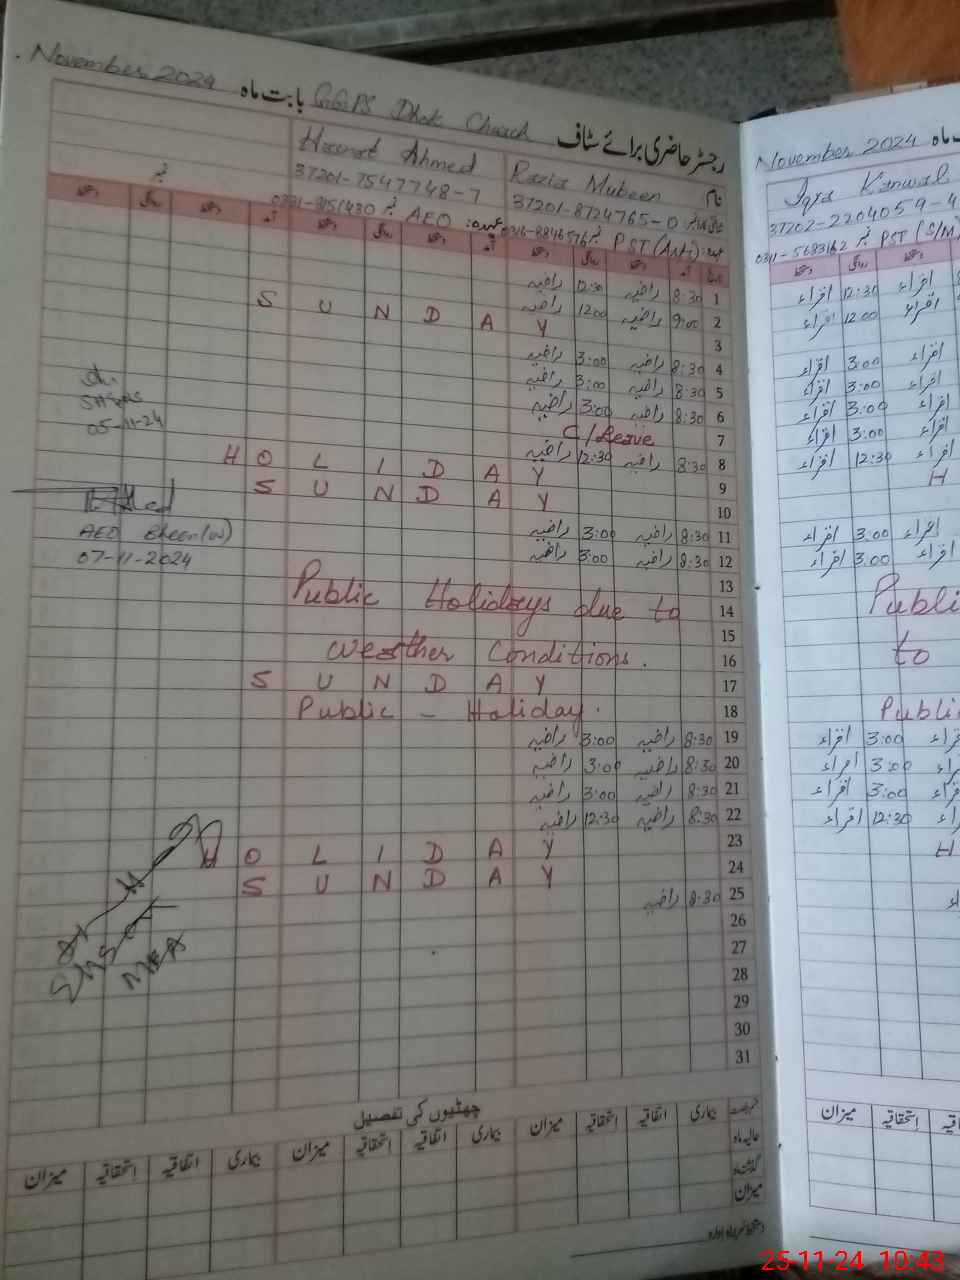 November 2024 بابت ماہ GGPS Dhok Church رجسٹر حاضری برائے سٹاف
Hasnat Ahmed Razia Mubeen نام
37201-7547748-7 37201-8724765-0
AEO عہدہ: PST (Arti)
8:30 راضیہ 12:30 راضیہ 1
9:00 راضیہ 12:00 راضیہ 2
S U N D A Y 3
8:30 راضیہ 3:00 راضیہ 4
8:30 راضیہ 3:00 راضیہ 5
8:30 راضیہ 3:00 راضیہ 6
C/Leave 7
8:30 راضیہ 12:30 راضیہ 8
H O L I D A Y 9
S U N D A Y 10
8:30 راضیہ 3:00 راضیہ 11
8:30 راضیہ 3:00 راضیہ 12
13
Public Holidays due to 14
15
Weather Conditions. 16
S U N D A Y 17
Public - Holiday. 18
8:30 راضیہ 3:00 راضیہ 19
8:30 راضیہ 3:00 راضیہ 20
8:30 راضیہ 3:00 راضیہ 21
8:30 راضیہ 12:30 راضیہ 22
H O L I D A Y 23
S U N D A Y 24
8:30 راضیہ 25
26
27
28
29
30
31
05-11-24
AEO Bheen(W)
07-11-2024
MEA
چھٹیوں کی تفصیل
بیماری اتفاقیہ استحقاقیہ میزان بیماری اتفاقیہ استحقاقیہ میزان بیماری اتفاقیہ استحقاقیہ میزان
حالیہ ماہ
گذشتہ
میزان
November 2024 ماہ
Iqra Kanwal
37202-2204059-4
0311-5683162 نمبر PST (S/M)
اقراء 12:30 اقراء
اقراء 12:00 اقراء
اقراء 3:00 اقراء
اقراء 3:00 اقراء
اقراء 3:00 اقراء
اقراء 3:00 اقراء
اقراء 12:30 اقراء
H
اقراء 3:00 اقراء
اقراء 3:00 اقراء
Publi
to
Public
اقراء 3:00
اقراء 3:00
اقراء 3:00
اقراء 12:30
H
استحقاقیہ میزان
25-11-24 10:43